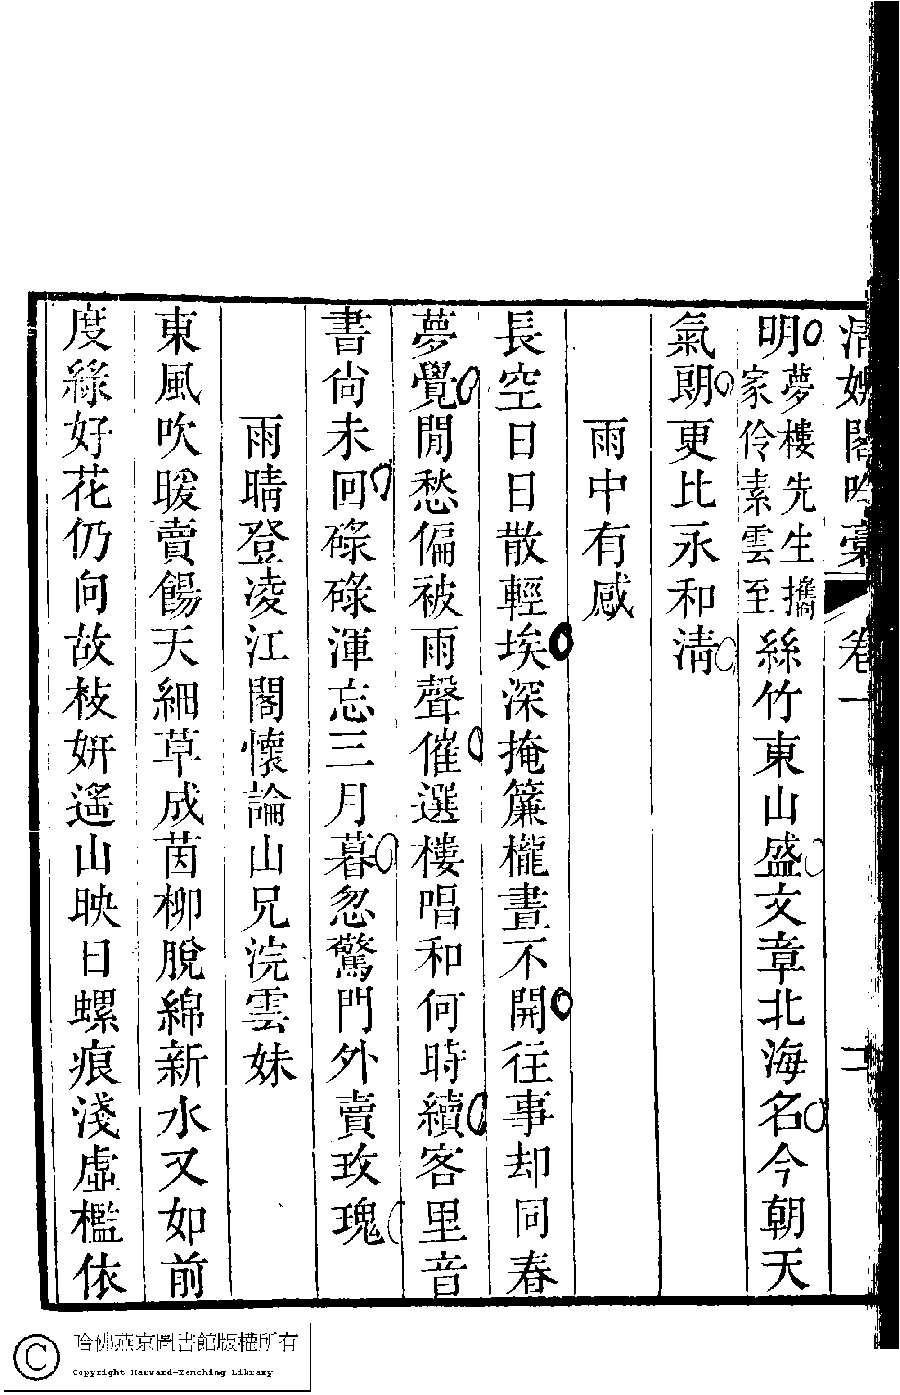 清娛閣吟稾 卷一 二
明夢樓先生攜家伶素雲至絲竹東山盛文章北海名今朝天
氣朗更比永和清
雨中有感
長空日日散輕埃深掩簾櫳晝不開往事却同春
夢覺閒愁偏被雨聲催選樓唱和何時續客里音
書尙未回碌碌渾忘三月暮忽驚門外賣玫瑰
雨晴登凌江閣懷論山兄浣雲妹
東風吹暖賣餳天細草成茵柳脫綿新水又如前
度綠好花仍向故枝妍遙山映日螺痕淺虛檻依
哈佛燕京圖書館版權所有
Copyright Harvard-Yenching Library